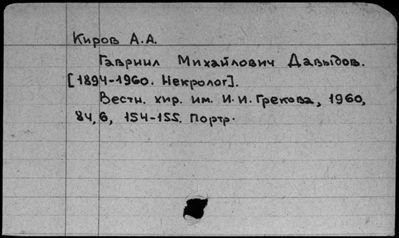 Киров А.А.
Гавриил Михайлович Давыдов.
[1894-1960. Некролог].
Вестн. хир. им. И.И. Грекова, 1960,
84, 6, 154-155. Портр.